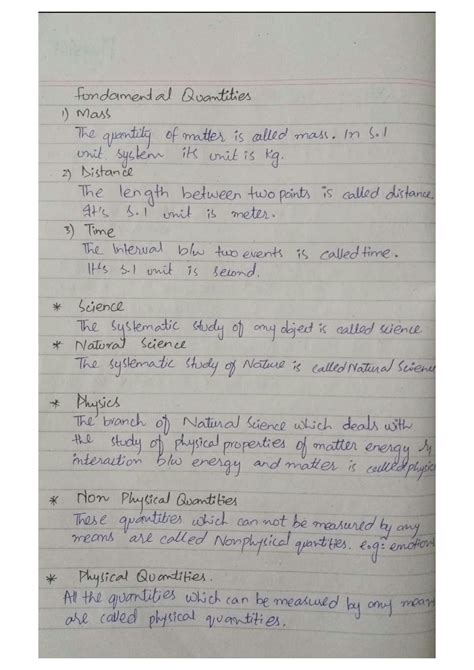 Fundamental Quantities
1) Mass
The quantity of matter is called mass. In S.I
unit system its unit is Kg.
2) Distance
The length between two points is called distance.
It's S.I unit is meter.
3) Time
The Interval b/w two events is called time.
It's S.I unit is second.
* Science
The systematic study of any object is called science
* Natural Science
The systematic study of Nature is called Natural Science
* Physics
The branch of Natural Science which deals with
the study of physical properties of matter energy &
interaction b/w energy and matter is called physics
* Non Physical Quantities
These quantities which can not be measured by any
means are called Nonphysical quantities. e.g: emotions
* Physical Quantities.
All the quantities which can be measured by any means
are called physical quantities.